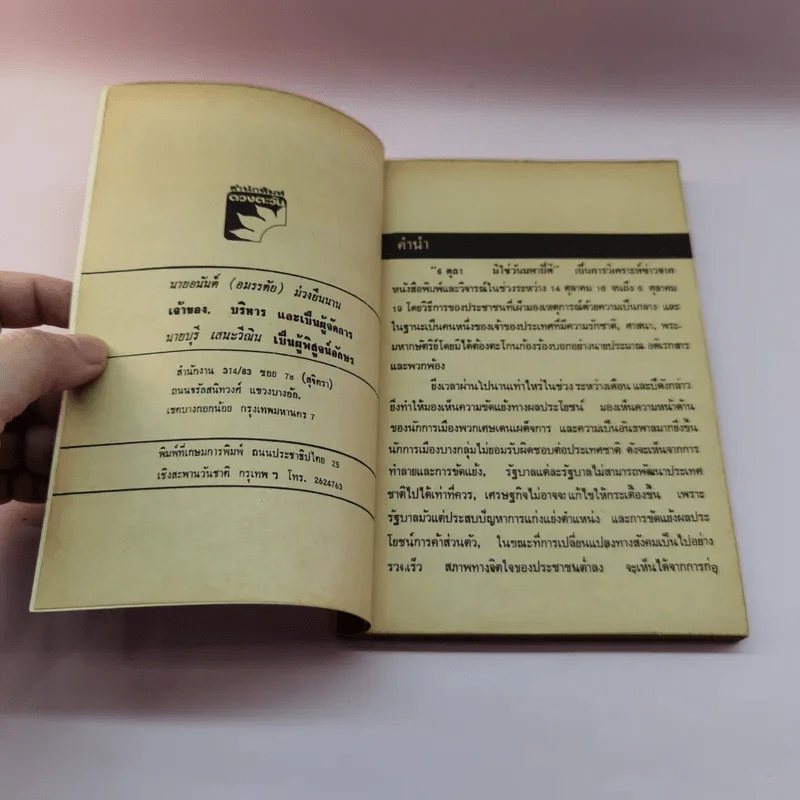 สำนักพิมพ์
ดวงตะวัน
นายอนันต์ (อมรรตัย) ม่วงยืนนาน
เจ้าของ, บริหาร และเป็นผู้จัดการ
นายบุรี เสนะวีณิน เป็นผู้พิสูจน์อักษร
สำนักงาน 314/83 ซอย 78 (สุจิตรา)
ถนนจรัลสนิทวงศ์ แขวงบางอ้อ,
เขตบางกอกน้อย กรุงเทพมหานคร 7
พิมพ์ที่เกษมการพิมพ์ ถนนประชาธิปไตย 25
เชิงสะพานวันชาติ กรุงเทพ ฯ โทร. 2824763
คำนำ
"6 ตุลา มิใช่วันมหาปิติ" เป็นการวิเคราะห์ข่าวจาก
หนังสือพิมพ์และวิจารณ์ในช่วงระหว่าง 14 ตุลาคม 16 จนถึง 6 ตุลาคม
19 โดยวิธีการของประชาชนที่เฝ้ามองเหตุการณ์ด้วยความเป็นกลาง และ
ในฐานะเป็นคนหนึ่งของเจ้าของประเทศที่มีความรักชาติ, ศาสนา, พระ-
มหากษัตริย์โดยมิได้ต้องตะโกนก้องร้องบอกอย่างนายประมาณ อดิเรกสาร
และพวกพ้อง
ยิ่งเวลาผ่านไปนานเท่าไหร่ในช่วง ระหว่างเดือน และปีดังกล่าว
ยิ่งทำให้มองเห็นความขัดแย้งทางผลประโยชน์ มองเห็นความหน้าด้าน
ของนักการเมืองพวกเศษเดนเผด็จการ และความเป็นอันธพาลมากยิ่งขึ้น
นักการเมืองบางกลุ่มไม่ยอมรับผิดชอบต่อประเทศชาติ ดังจะเห็นจากการ
ทำลายและการขัดแย้ง, รัฐบาลแต่ละรัฐบาลไม่สามารถพัฒนาประเทศ
ชาติไปได้เท่าที่ควร, เศรษฐกิจไม่อาจจะแก้ไขให้กระเตื้องขึ้น เพราะ
รัฐบาลมัวแต่ประสบปัญหาการแก่งแย่งตำแหน่ง และการขัดแย้งผลประ
โยชน์การค้าส่วนตัว, ในขณะที่การเปลี่ยนแปลงทางสังคมเป็นไปอย่าง
รวดเร็ว สภาพทางจิตใจของประชาชนต่ำลง จะเห็นได้จากการก่อ